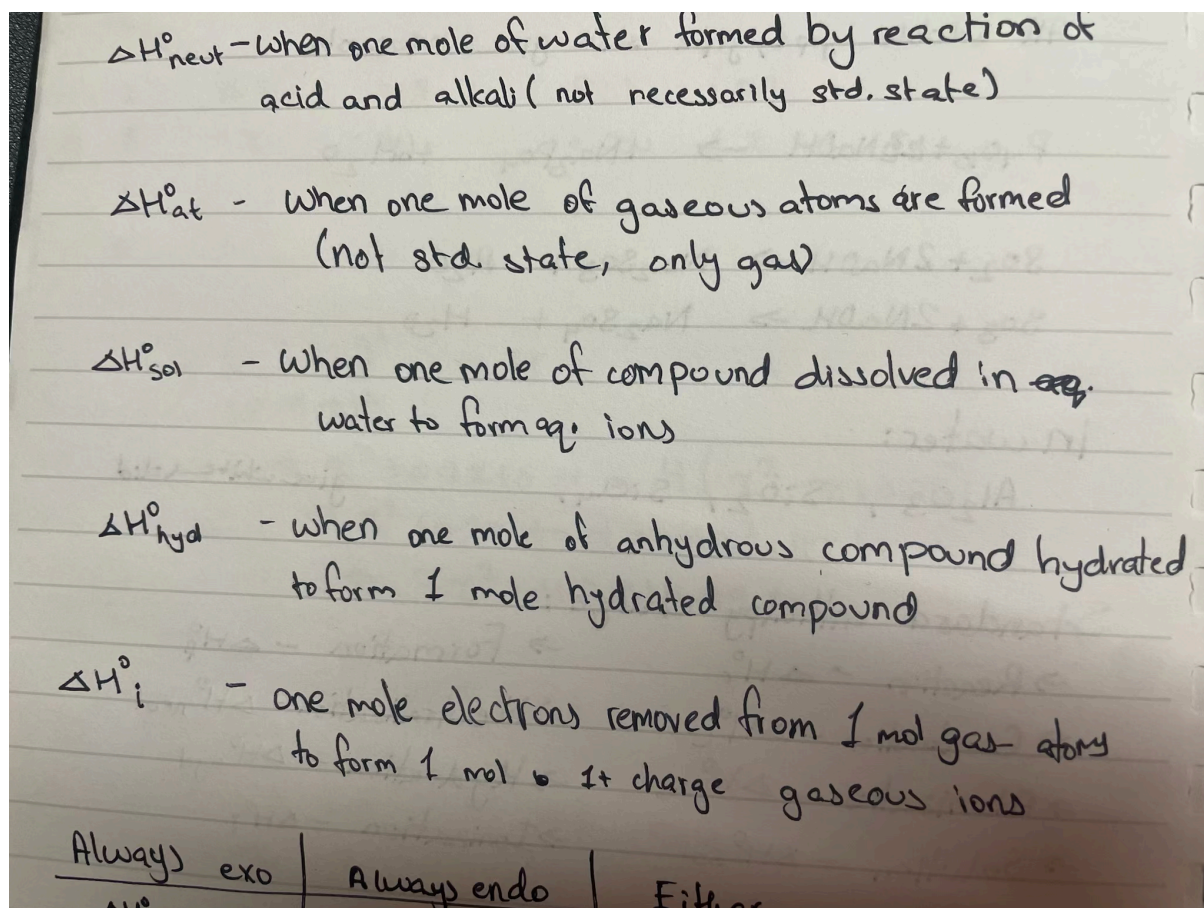 ΔH°neut - when one mole of water formed by reaction of
acid and alkali (not necessarily std. state)
ΔH°at - when one mole of gaseous atoms are formed
(not std. state, only gas)
ΔH°sol - when one mole of compound dissolved in
water to form aq. ions
ΔH°hyd - when one mole of anhydrous compound hydrated
to form 1 mole hydrated compound
ΔH°i - one mole electrons removed from 1 mol gas atoms
to form 1 mol 1+ charge gaseous ions
Always exo | Always endo |